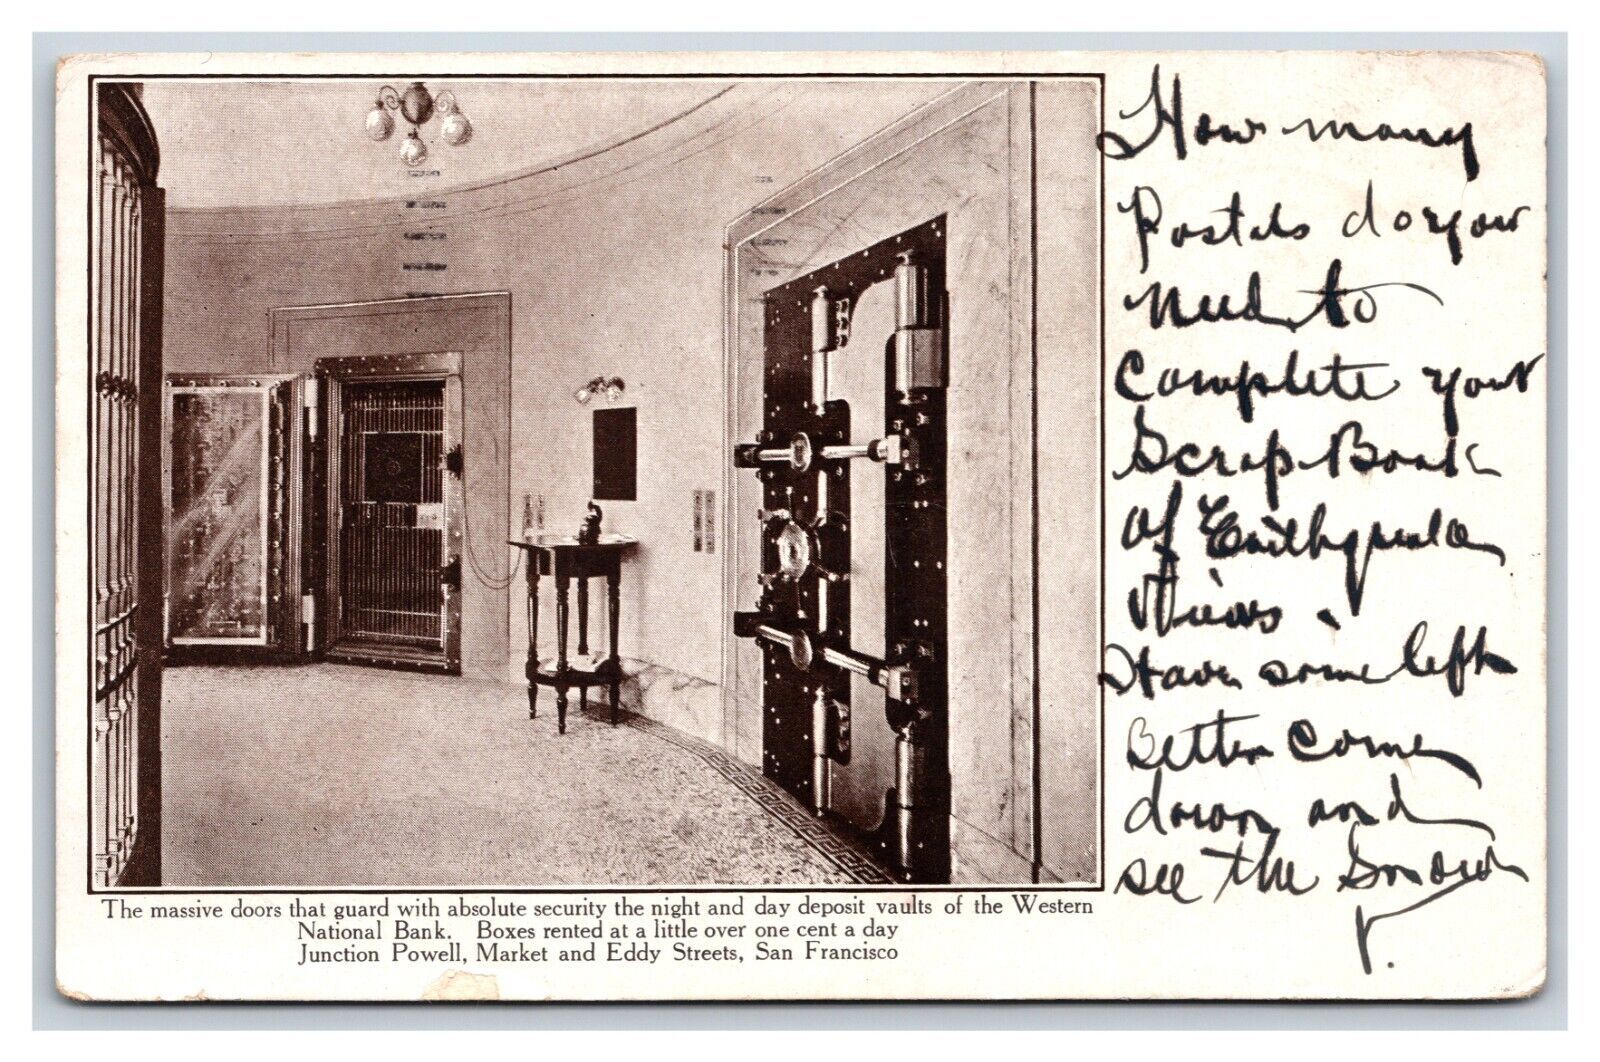 The massive doors that guard with absolute security the night and day deposit vaults of the Western
National Bank. Boxes rented at a little over one cent a day
Junction Powell, Market and Eddy Streets, San Francisco
How many
Postals do you
need to
complete your
Scrap Book
of Earthquake
Views.
Have some left
Better come
down and
see the